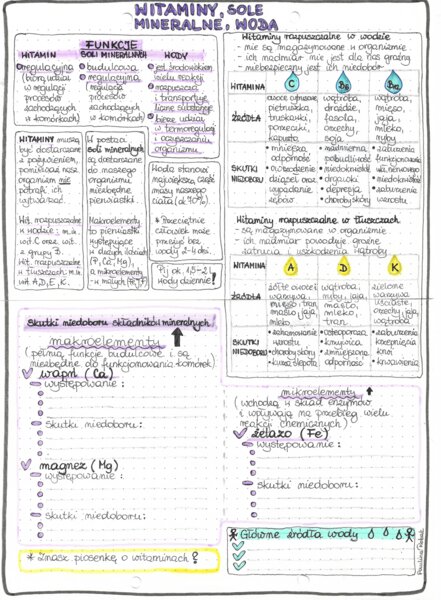 WITAMINY, SOLE
MINERALNE, WODA
FUNKCJE
WITAMIN
regulacyjna
(biorą udział
w regulacji
procesów
zachodzących
w komórkach)
SOLI MINERALNYCH
budulcowa
regulacyjna
(regulacja
procesów
zachodzących
w komórkach)
WODY
jest środowiskiem
wielu reakcji
rozpuszcza
i transportuje
liczne substancje
bierze udział
w termoregulacji
i oczyszczaniu
organizmu
WITAMINY muszą
być dostarczane
z pożywieniem,
ponieważ nasz
organizm nie
potrafi ich
wytwarzać.
Wit. rozpuszczalne
w wodzie: m.in.
wit. C oraz wit.
z grupy B.
Wit. rozpuszczalne
w tłuszczach: m.in.
wit A, D, E, K.
W postaci
soli mineralnych
są dostarczane
do naszego
organizmu
niezbędne
pierwiastki.
Makroelementy
to pierwiastki
występujące
w dużych ilościach
(P, Ca, Mg),
a mikroelementy
- w małych
Woda stanowi
największą część
masy naszego
ciała (ok 70%)
* Przeciętnie
człowiek może
przeżyć bez
wody 2-4 dni.
Pij ok. 1,5-2 l
wody dziennie!
Witaminy rozpuszczalne w wodzie
- nie są magazynowane w organizmie
- ich nadmiar nie jest dla nas groźny
- niebezpieczny jest ich niedobór
WITAMINA
C
B6
B12
ŹRÓDŁA
owoce cytrusowe,
pietruszka,
truskawki,
porzeczki,
papryka
wątroba,
drożdże,
fasola,
orzechy,
soja
wątroba,
mięso,
jaja,
mleko,
ryby
SKUTKI
NIEDOBORU
mniejsza
odporność
krwawienie
dziąseł oraz
wypadanie
zębów
nadmierna
pobudliwość
niedokrwistość
drgawki
depresja
choroby skóry
zaburzenia
funkcjonowania
ukł. nerwowego
niedokrwistość
zaburzenia
wzrostu
Witaminy rozpuszczalne w tłuszczach
- są magazynowane w organizmie
- ich nadmiar powoduje groźne
zatrucia i uszkodzenia wątroby
WITAMINA
A
D
K
ŹRÓDŁA
żółte owoce i
warzywa,
mięso, tran,
masło, jaja,
mleko
wątroba,
ryby, jaja,
masło,
mleko,
tran
zielone
warzywa
liściaste,
orzechy, jaja,
wątroba
SKUTKI
NIEDOBORU
zahamowanie
wzrostu
choroby skóry
kurza ślepota
osteoporoza
krzywica
zmniejszona
odporność
zaburzenia
krzepnięcia
krwi
krwawienia
Skutki niedoboru składników mineralnych
makroelementy
(pełnią funkcje budulcowe i są
niezbędne do funkcjonowania komórek)
wapń (Ca)
występowanie:
skutki niedoboru:
magnez (Mg)
występowanie:
skutki niedoboru:
* Znasz piosenkę o witaminach?
mikroelementy
(wchodzą w skład enzymów
i wpływają na przebieg wielu
reakcji chemicznych)
żelazo (Fe)
występowanie:
skutki niedoboru:
Główne źródła wody